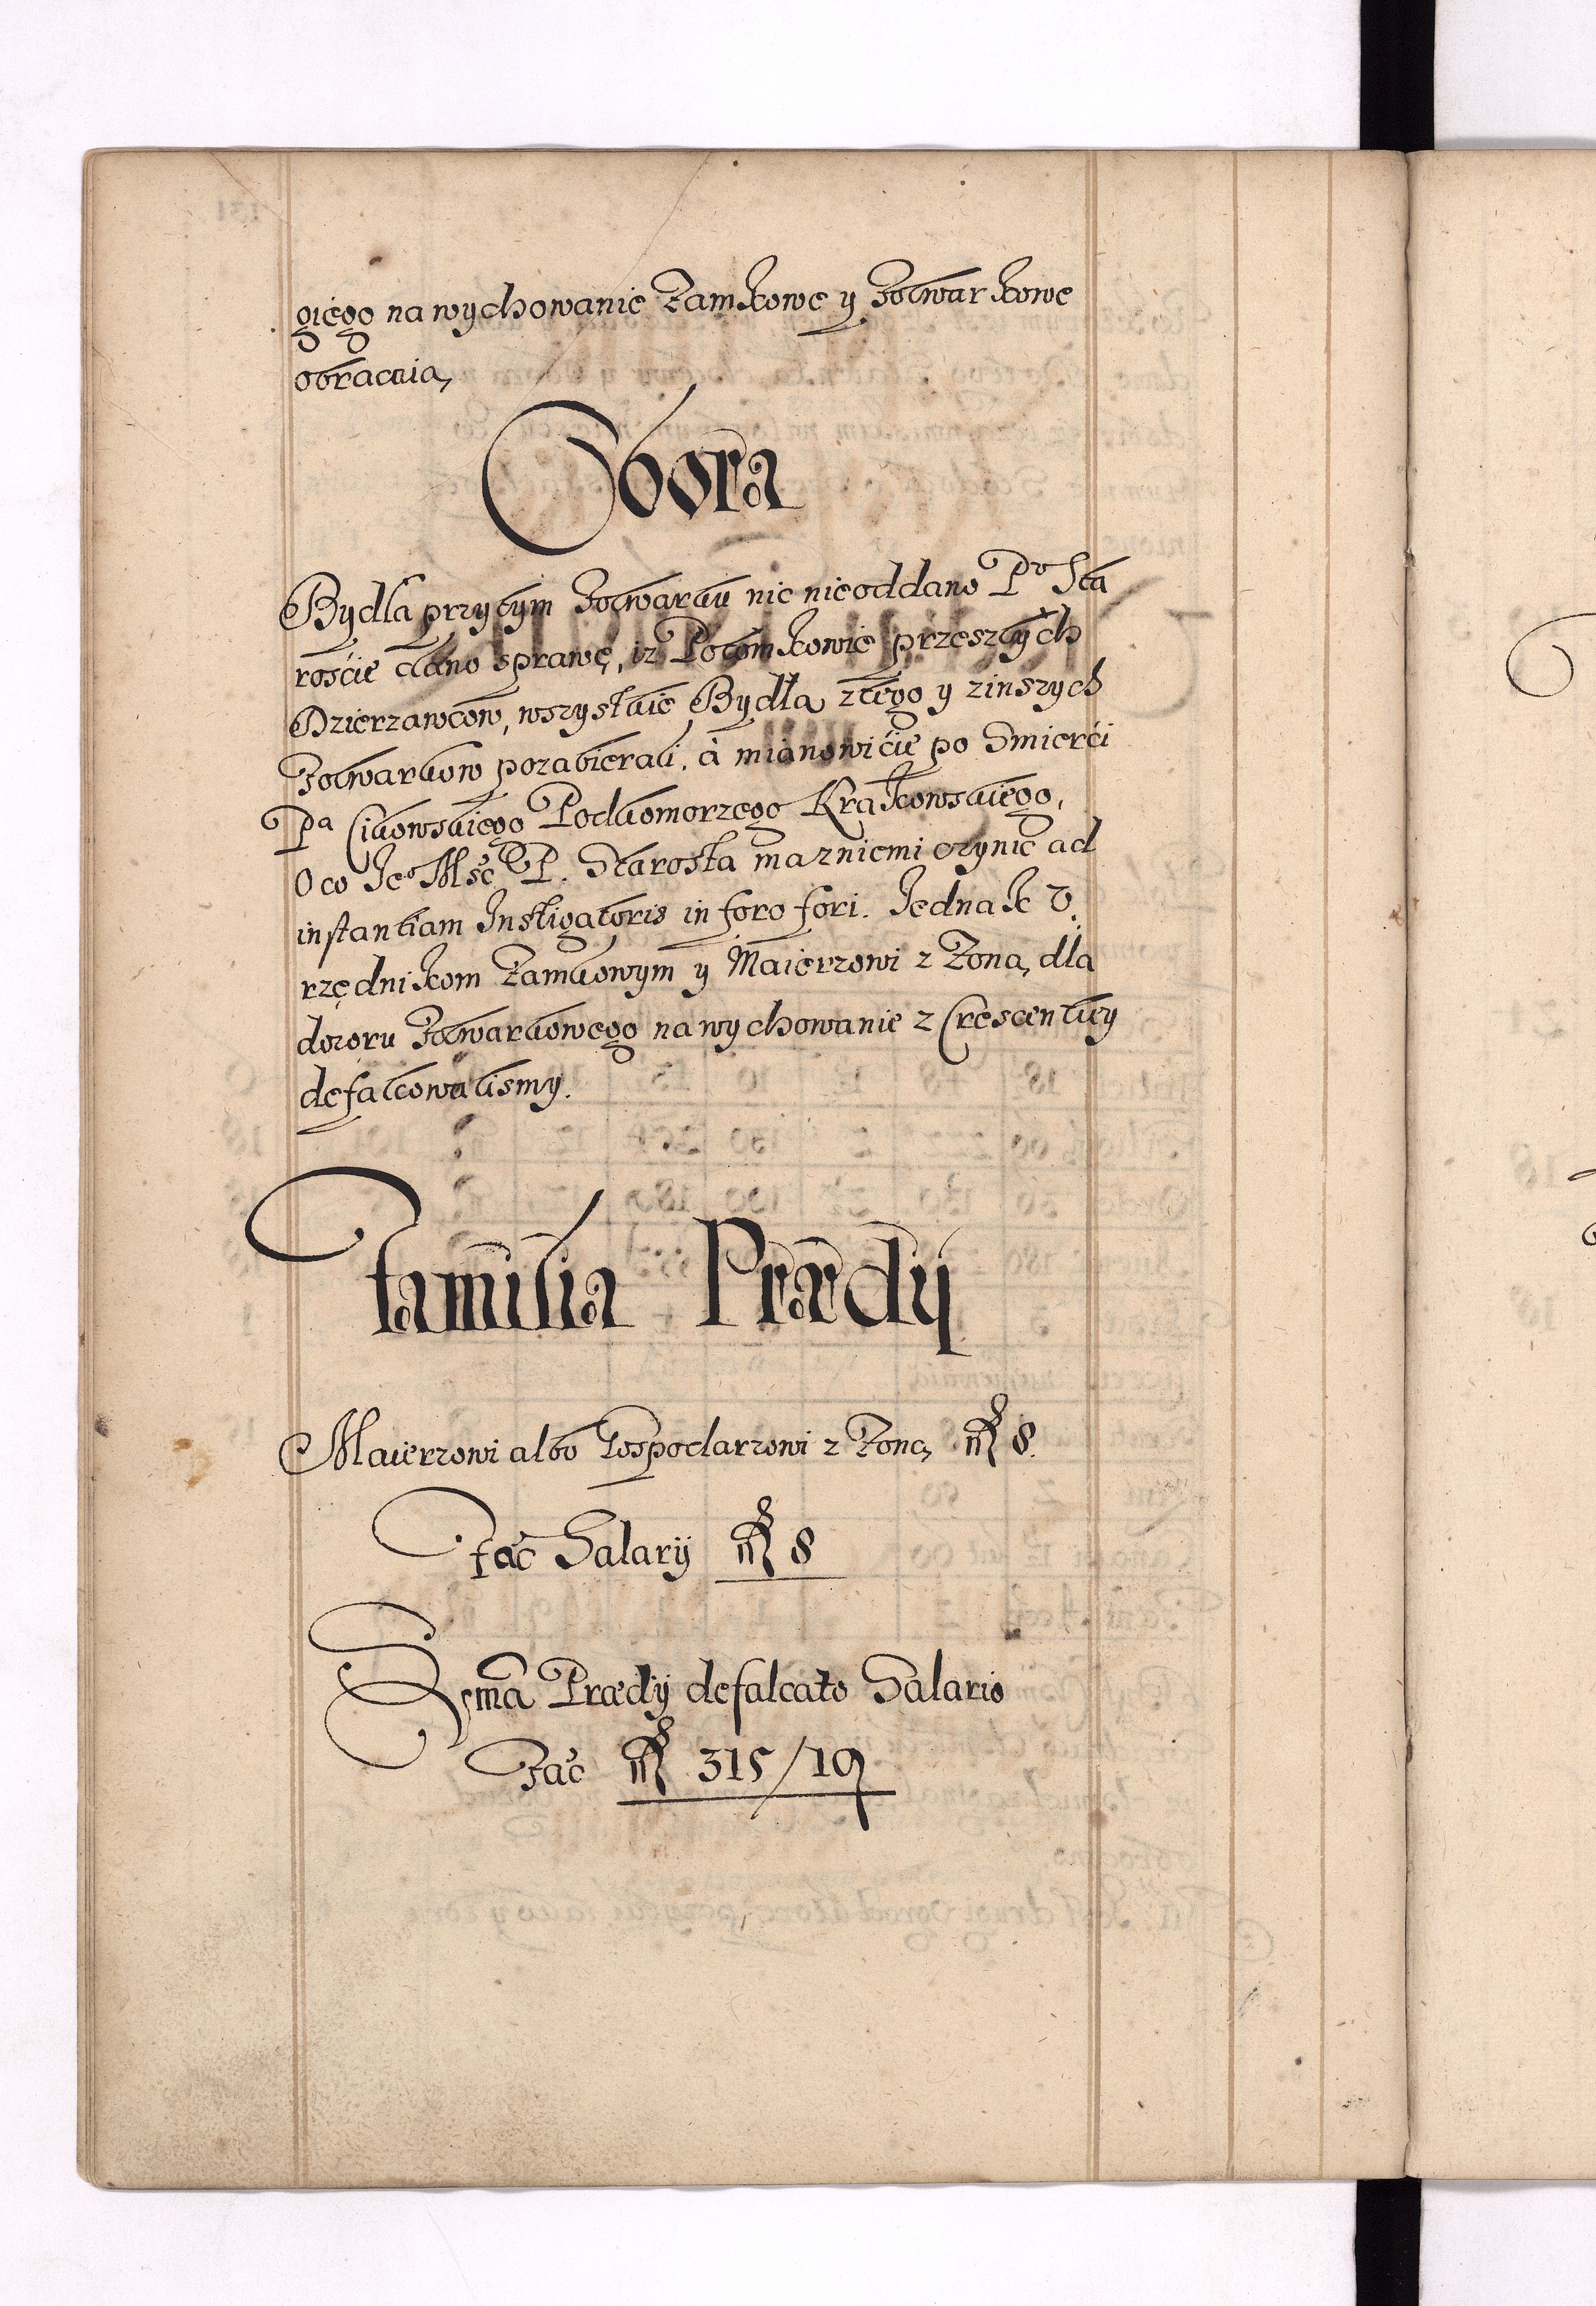 giego na wychowanie Zamkowe y Folwarkowe
obracaia,
Obora
Bydła przy tym Folwarku nic nie oddano Pu Sta
roście dano sprawę, iz Potomkowie przeszłych
Dzierzawcow, wszystkie Bydła ztego y zinszych
Folwarkow pozabierali, à mianowicie po Smierci
Pa Cikowskiego Podkomorzego Krakowskiego,
O co Ieo Mść P. Starosta ma z niemi czynic ad
instantiam Instigatoris in foro fori. Iednak V.
rzędnikom Zamkowym y Maierzowi z Zoną dla
dozoru Folwarkowego na wychowanie z Crescentiey
defalcowalismy.
Familia Prædij
Maierzowi albo Gospodarzowi z Zoną 8.
fac Salarij 8
Sma Prædij defalcato Salario
Fac 315/19